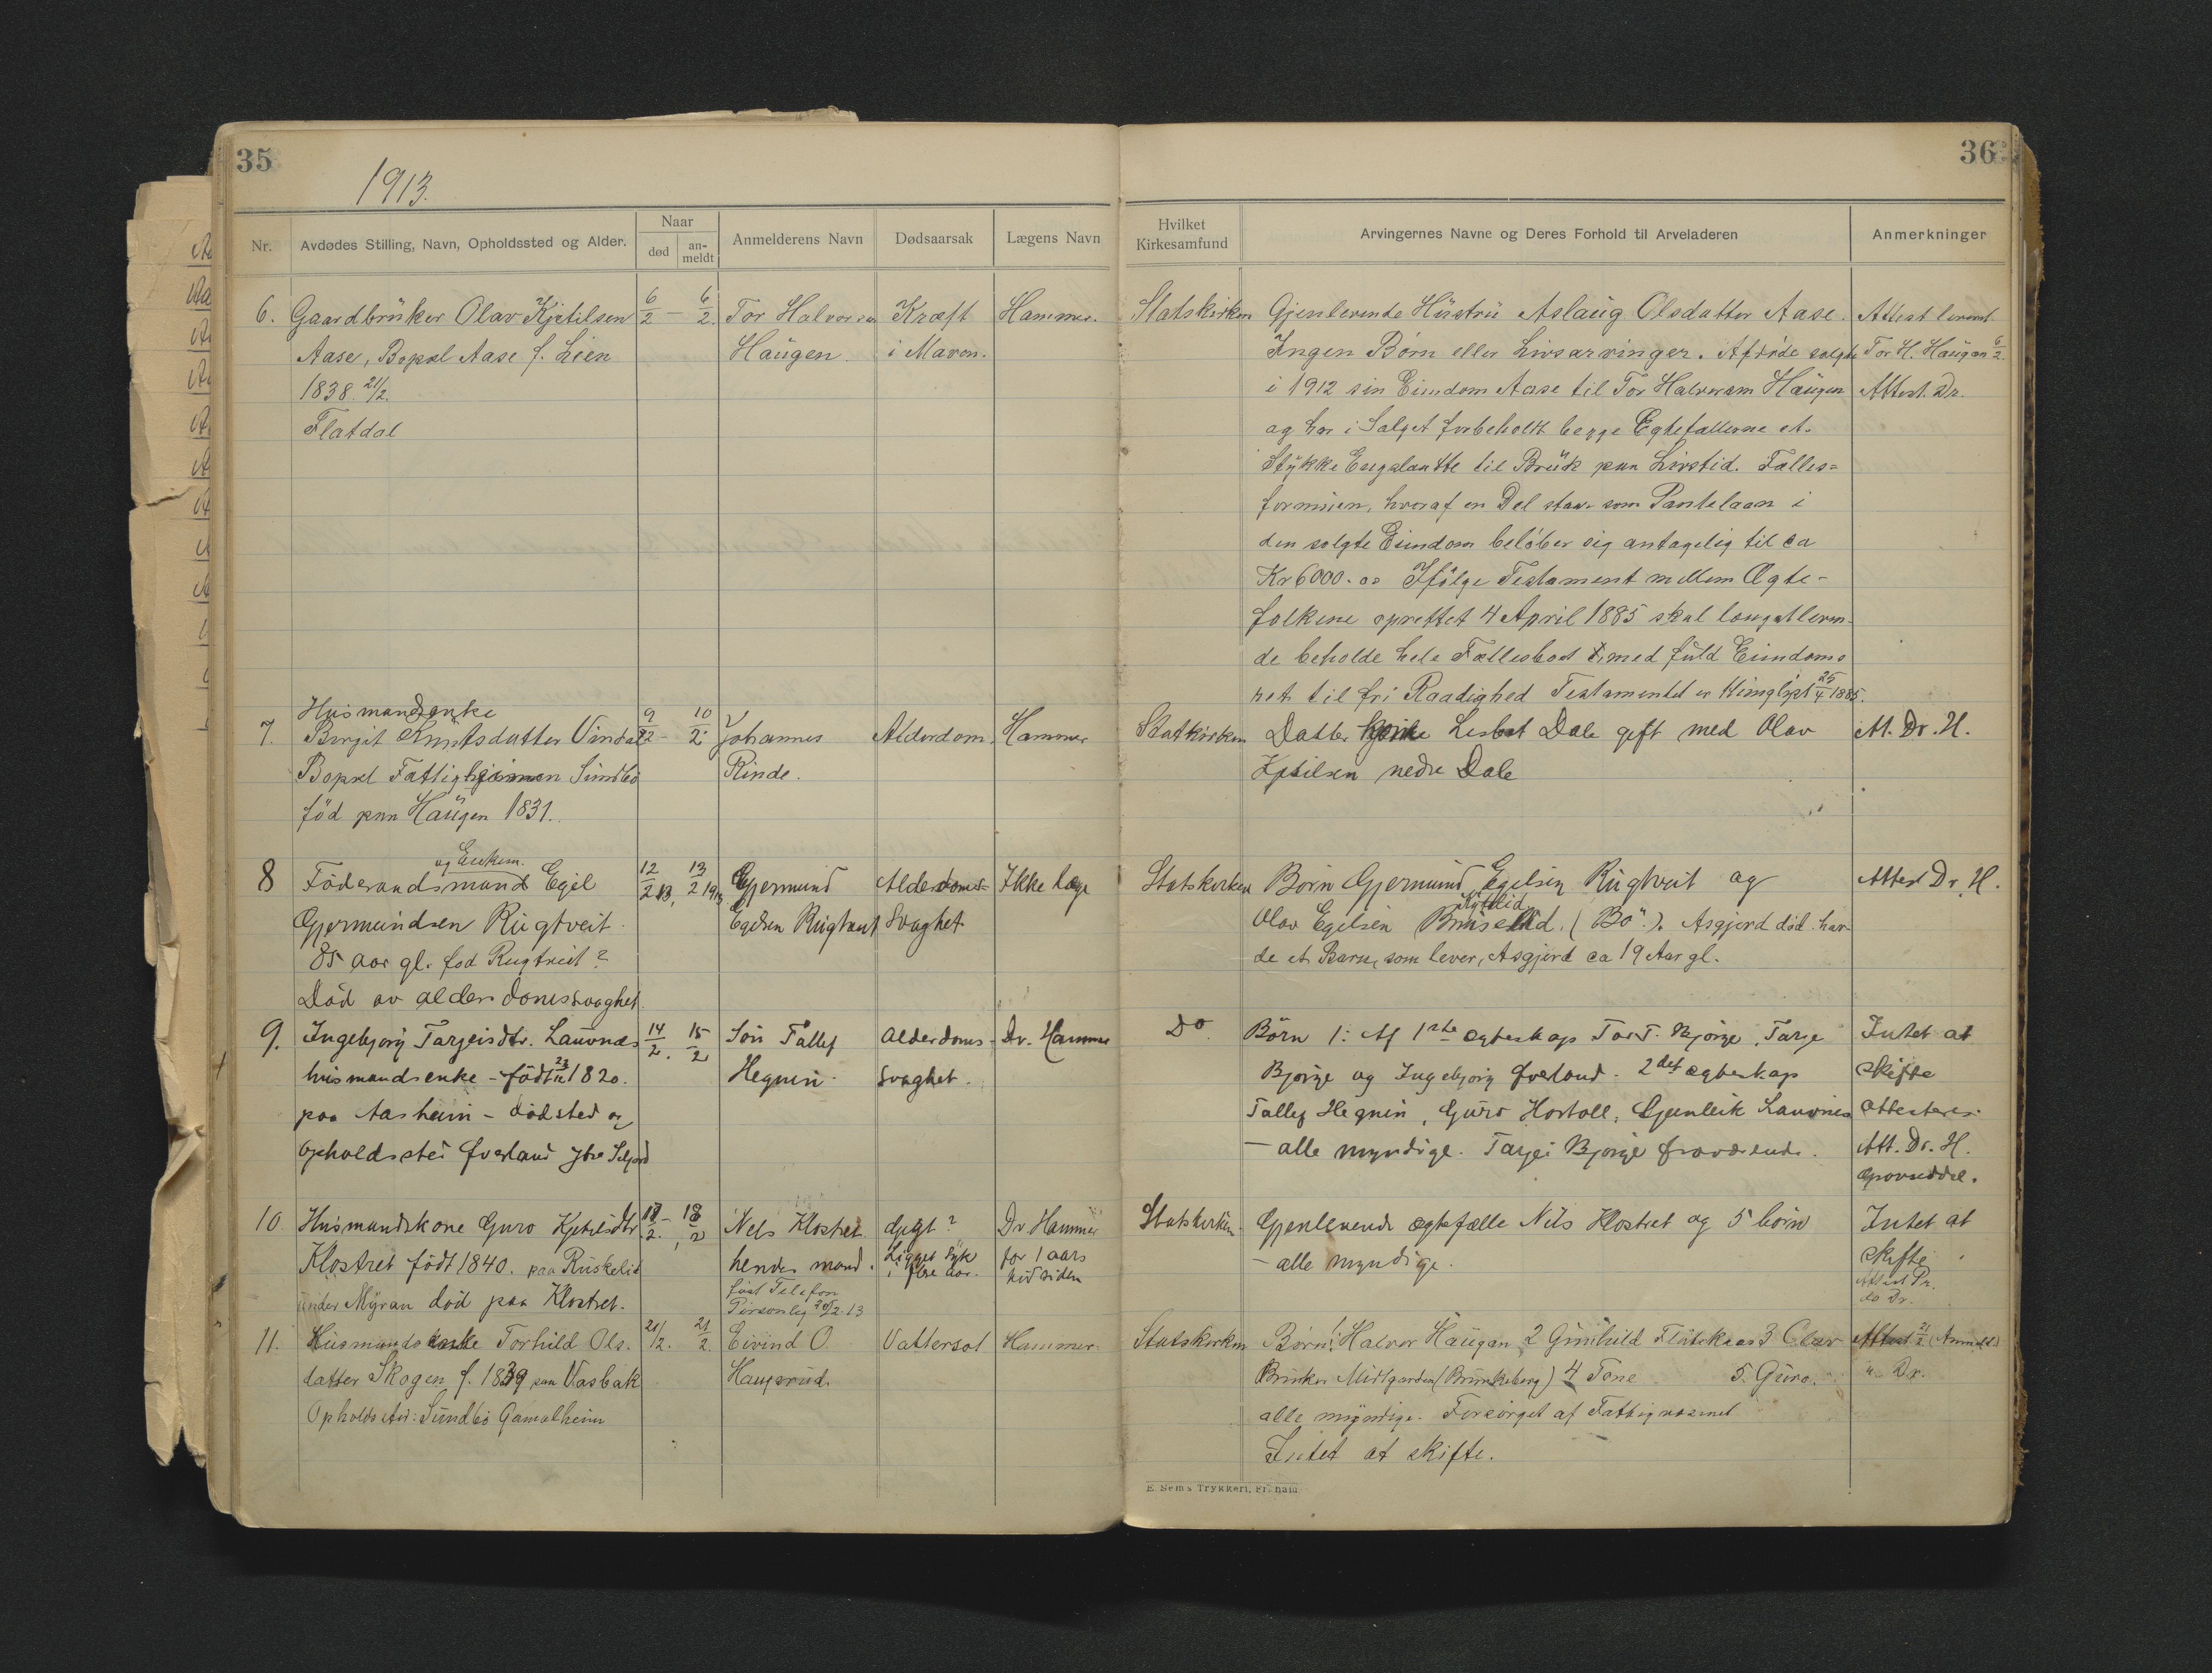 35
1913.
Nr.
Avdødes Stilling, Navn, Opholdssted og Alder.
Naar
død
an-
meldt
Anmelderens Navn
Dødsaarsak
Lægens Navn
6. Gaardbruker Olav Kjetilsen 6/2 – 6/2. Tor Halvorsen Kræft Hammer.
Aase, Bopæl Aase f. Lien Haugen. i Maven.
1838. 21/2.
Flatdal
Husmandsenke
7. Birgit Knutsdatter Vindal 9/2 – 10/2. Johannes Alderdom. Hammer
Bopæl Fattigheimen Sundbø Rinde.
fød paa Haugen 1831.
og Enkem.
8 Föderaadsmand Egil 12/2 13, 13/2 1913 Gjermund Alderdoms- Ikke læge
Gjermundsen Rugtveit. Egilsen Rugtveit Svaghet.
85 aar gl. fød Rugtveit?
Död av alderdomssvaghet.
9. Ingebjorg Tarjeisdtr. Lauvnes 14/2. 15/2 Sön Tallef Alderdoms- Dr. Hammer
husmandsenke – född 1820. Hegnin. svaghet.
paa Aasheim – dödsted og
opholdssted Överland Ytre Seljord
10. Husmandskone Guro Kjetilsdtr 18/2. , 18/2 Nels Klostret Gigt? Dr Hammer
Klostret födt 1840. paa Ruskelid hendes mand. Ligget syk for 1 aars
under Myran död paa Klostret. i flere aar. tid siden
först Telefon
Personlig 20/2.13
11. Husmandsenke Torhild Ols- 21/2. 21/2. Eivind O. Vattersot Hammer.
datter Skogen f. 1839 paa Vasbak Haugerud.
Opholdssted: Sundbö Gamalheim
36
Hvilket
Kirkesamfund
Arvingernes Navne og Deres Forhold til Arveladeren
Anmerkninger
Statskirken Gjenlevende Hustru Aslaug Olsdatter Aase. Attest leveret
Ingen Børn eller Livsarvinger. Afdøde solgte Tor H. Haugen 6/2.
i 1912 sin Eiendom Aase til Tor Halvorsen Haugen Attest. Dr.
og har i Salget forbeholdt begge Egtefællerne et
Stykke Engslaatte til Bruk paa Livstid. Fælles-
formuen, hvoraf en Del staar som Pantelaan i
den solgte Eiendom beløber sig antagelig til ca
Kr 6000.00 Ifölge Testament mellem Ægte-
folkene oprettet 4 April 1885 skal længstleven-
de beholde hele Fællesboet med fuld Eiendoms
ret til fri Raadighed Testamentet er thinglyst 25/4 1885.
Statskirken Datter Lisbet Dale gift med Olav Att. Dr. H.
Kjetilsen nedre Dale
Statskirken Børn Gjermund Egilsen Rugtveit og Attest Dr. H.
Olav Egilsen (Bö"). Asgjerd död. hav-
de et Barn, som lever, Asgjerd ca 19 Aar gl.
Do Börn 1: Af 1ste egteskap Tor T. Bjorge, Tarje Intet at
Bjorge og Ingebjorg Överland. 2det egteskap skifte
Tallef Hegnin, Guro Hostoll, Gjenleik Lauvnes attesteres.
– alle myndige. Tarjei Bjorge fraværende. Att. Dr. H.
Statskirken. Gjenlevende ægtefælle Nils Klostret og 5 börn Intet at
– alle myndige. skifte.
Attest Pr.
do Dr.
Statskirken Børn: 1 Halvor Haugan 2 Gunhild Flåtekaas 3 Olav Attest 21/2 (Anmeld.)
Bruker Midtgarden (Brunkeberg) 4 Tone 5. Guro. " Dr.
alle myndige. Forsörget af Fattigvæsenet
Intet at skifte.
E. Sem's Trykkeri, Fr.hald.